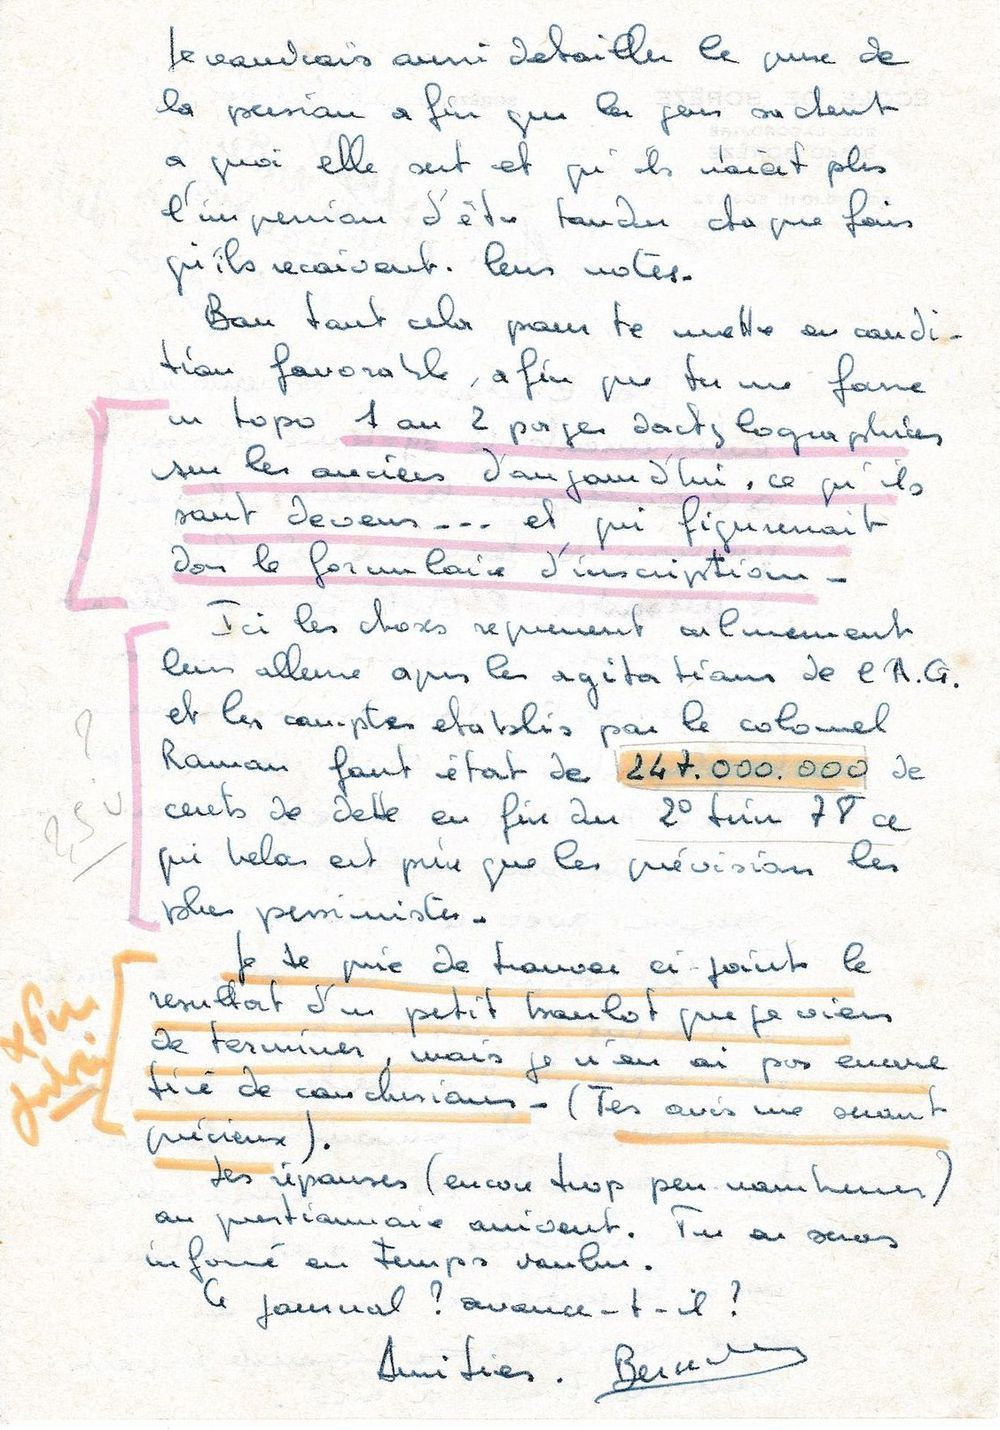 Je voudrais aussi détailler le prix de
la pension afin que les gens sachent
a quoi elle sert et qu'ils n'aient plus
l'impression d'être tondus chaque fois
qu'ils recoivent. leurs notes.
Bon tout cela pour te mettre en condi-
tion favorable, afin que tu me fasse
un topo 1 ou 2 pages dactylographiées
sur les anciens d'aujourd'hui, ce qu'ils
sont devenus --- et qui figurerait
dans le formulaire d'inscription -
Ici les choses reprennent calmement
leur allure apres les agitations de l'A.G.
et les comptes etablis par le colonel
Raman font état de 247.000.000 de
cents de dette en fin du 2° trim 78 ce
qui helas est pire que les prévisions les
plus pessimistes -
2,5 ?
Je te prie de trouver ci-joint le
resultat d'un petit boulot que je viens
de terminer, mais je n'en ai pas encore
tiré de conclusions - (Tes avis me seront
précieux).
Les réponses (encore trop peu nombreuses)
au questionnaire arrivent. Tu en seras
informé en temps voulu.
Le journal ? avance-t-il ?
Amitiés.